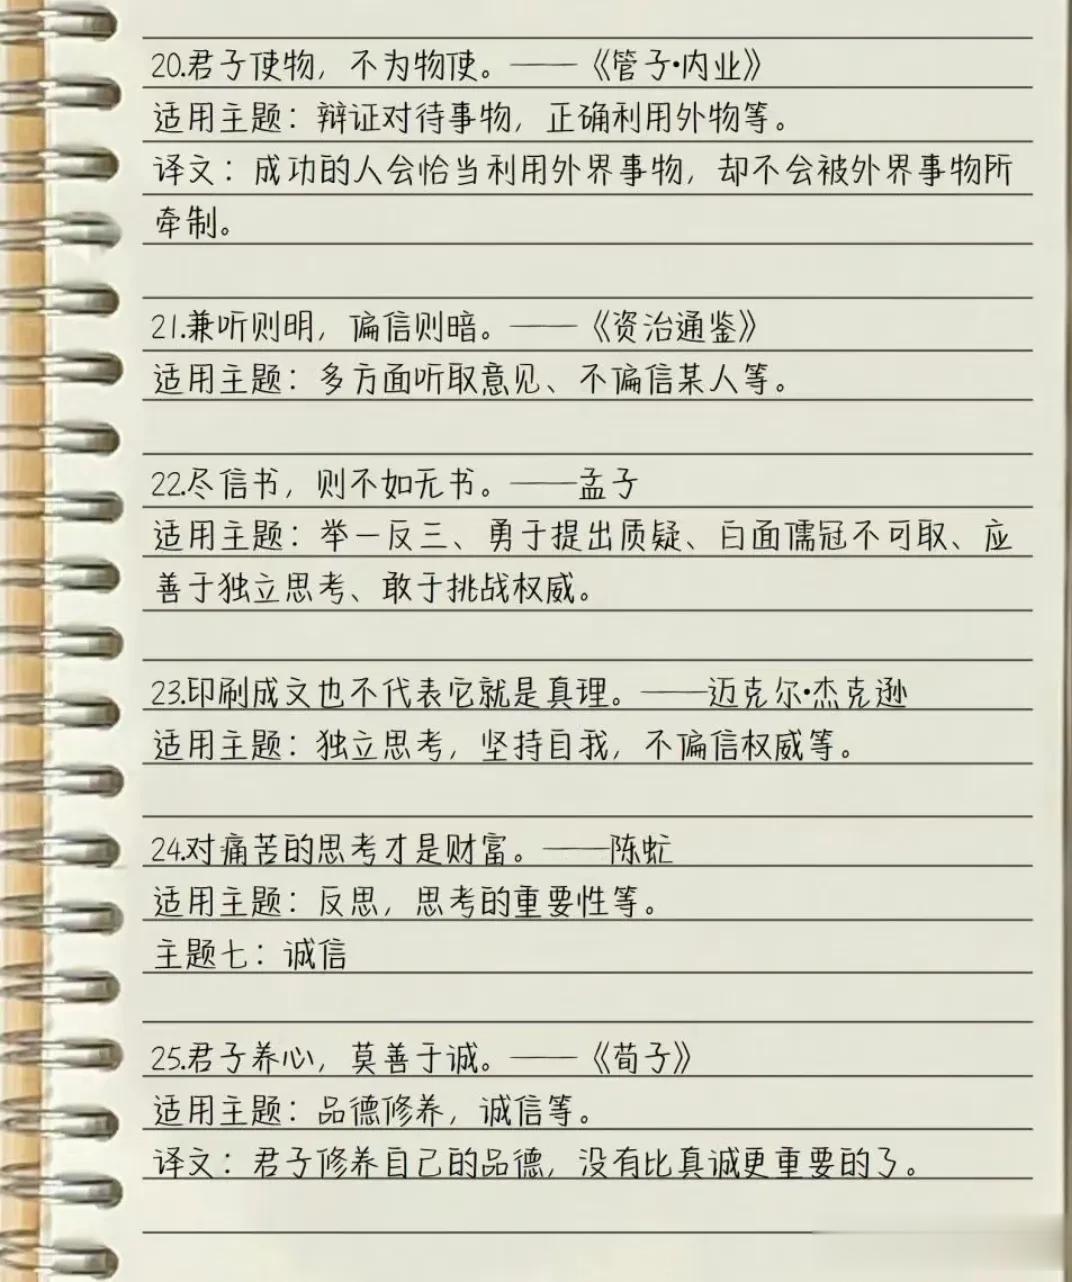 20.君子使物，不为物使。——《管子·内业》
适用主题：辩证对待事物，正确利用外物等。
译文：成功的人会恰当利用外界事物，却不会被外界事物所
牵制。
21.兼听则明，偏信则暗。——《资治通鉴》
适用主题：多方面听取意见、不偏信某人等。
22.尽信书，则不如无书。——孟子
适用主题：举一反三、勇于提出质疑、白面儒冠不可取、应
善于独立思考、敢于挑战权威。
23.印刷成文也不代表它就是真理。——迈克尔·杰克逊
适用主题：独立思考，坚持自我，不偏信权威等。
24.对痛苦的思考才是财富。——陈虻
适用主题：反思，思考的重要性等。
主题七：诚信
25.君子养心，莫善于诚。——《荀子》
适用主题：品德修养，诚信等。
译文：君子修养自己的品德，没有比真诚更重要的了。